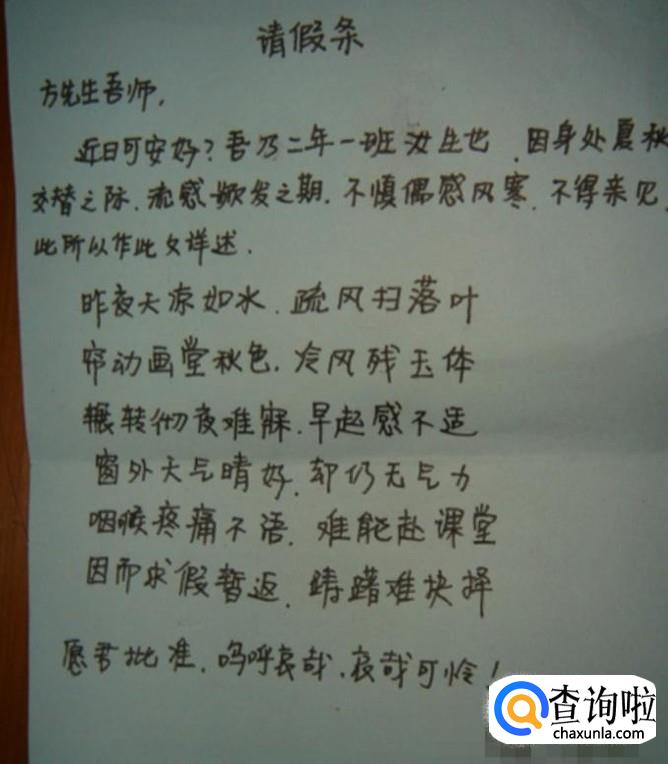 请假条
方先生吾师，
近日可安好？吾乃二年一班汝生也，因身处夏秋
交替之际，流感频发之期，不慎偶感风寒，不得亲见，
此所以作此文详述．
昨夜天凉如水，疏风扫落叶
帘动画堂秋色，冷风残玉体
辗转彻夜难寐，早起感不适
窗外天气晴好，却仍无气力
咽喉疼痛不语，难能赴课堂
因而求假暂返，踌躇难抉择
愿君批准，呜呼哀哉，哀哉可怜！
查询啦
chaxunla.com